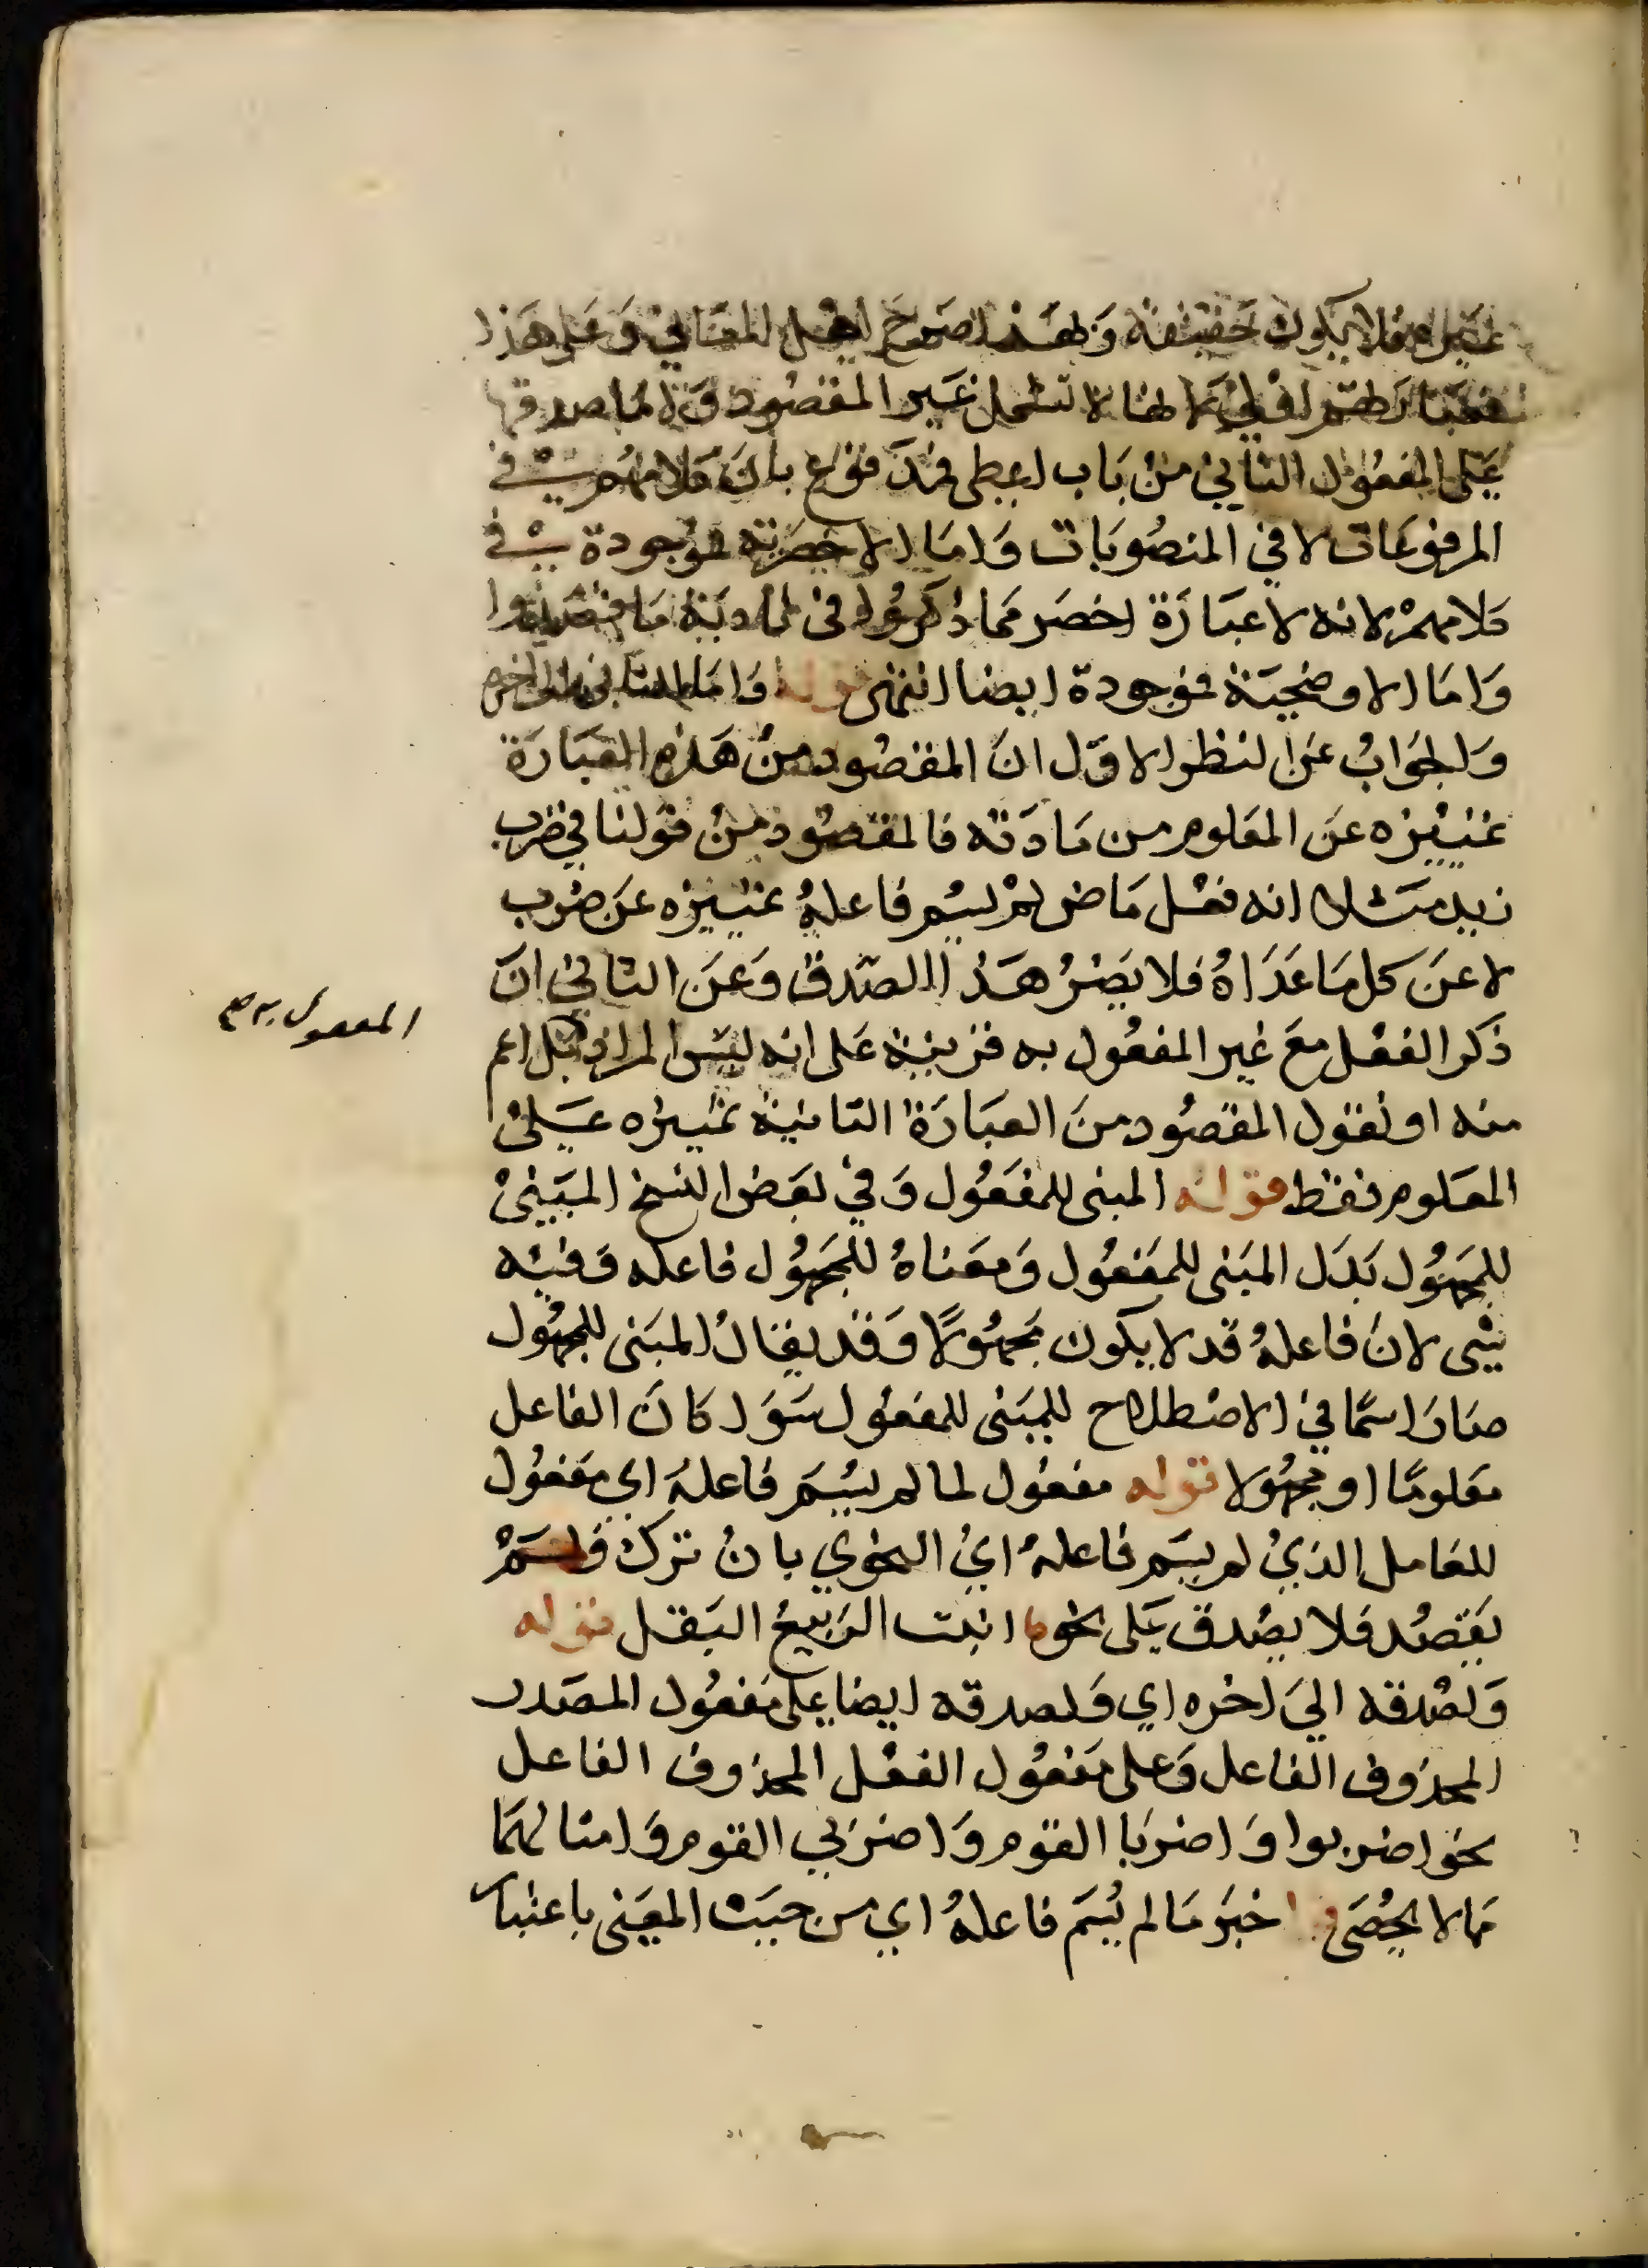 فلا يكون حقيقة وبهذا صرح اهل المعاني وعلى هذا
فعبارتهم اولى لانها لا تشمل غير المقصود واما صدقها
على المفعول الثاني من باب اعطى فمدفوع بان كلامهم في
المرفوعات لا في المنصوبات واما الاخصرية فموجودة في
كلامهم لانه لا عبارة اخصر مما ذكروا في تادية ما قصدوا
واما الاوضحية فموجودة ايضا انتهى قوله واما الثاني الى اخره
والجواب عن النظر الاول ان المقصود من هذه العبارة
تمييزه عن المعلوم من مادته فالمقصود من قولنا في ضرب
زيد مثلا انه فعل ماض لم يسم فاعله تمييزه عن ضرب
لا عن كل ما عداه فلا يضر هذا الصدق وعن الثاني ان
ذكر الفعل مع غير المفعول به قرينة على انه ليس المراد بل اعم
المفعول به صح
منه او نقول المقصود من العبارة الثانية تمييزه على
المعلوم فقط قوله المبنى للمفعول وفي بعض النسخ المبني
للمجهول بدل المبنى للمفعول ومعناه للمجهول فاعله وفيه
شى لان فاعله قد لا يكون مجهولا وقد يقال المبنى للمجهول
صار اسما في الاصطلاح للمبنى للمفعول سوا كان الفاعل
معلوما او مجهولا قوله مفعول لما لم يسم فاعله اي مفعول
للعامل الذي لم يسم فاعله اي النحوي بان ترك ولم
يقصد فلا يصدق على نحو انبت الربيع البقل قوله
ولصدقه الى اخره اي ولصدقه ايضا على مفعول المصدر
المحذوف الفاعل وعلى مفعول الفعل المحذوف الفاعل
نحو اضربوا واضربا القوم واضربي القوم وامثالهما
مما لا يحصى خبر ما لم يسم فاعله اي من حيث المعنى باعتبار